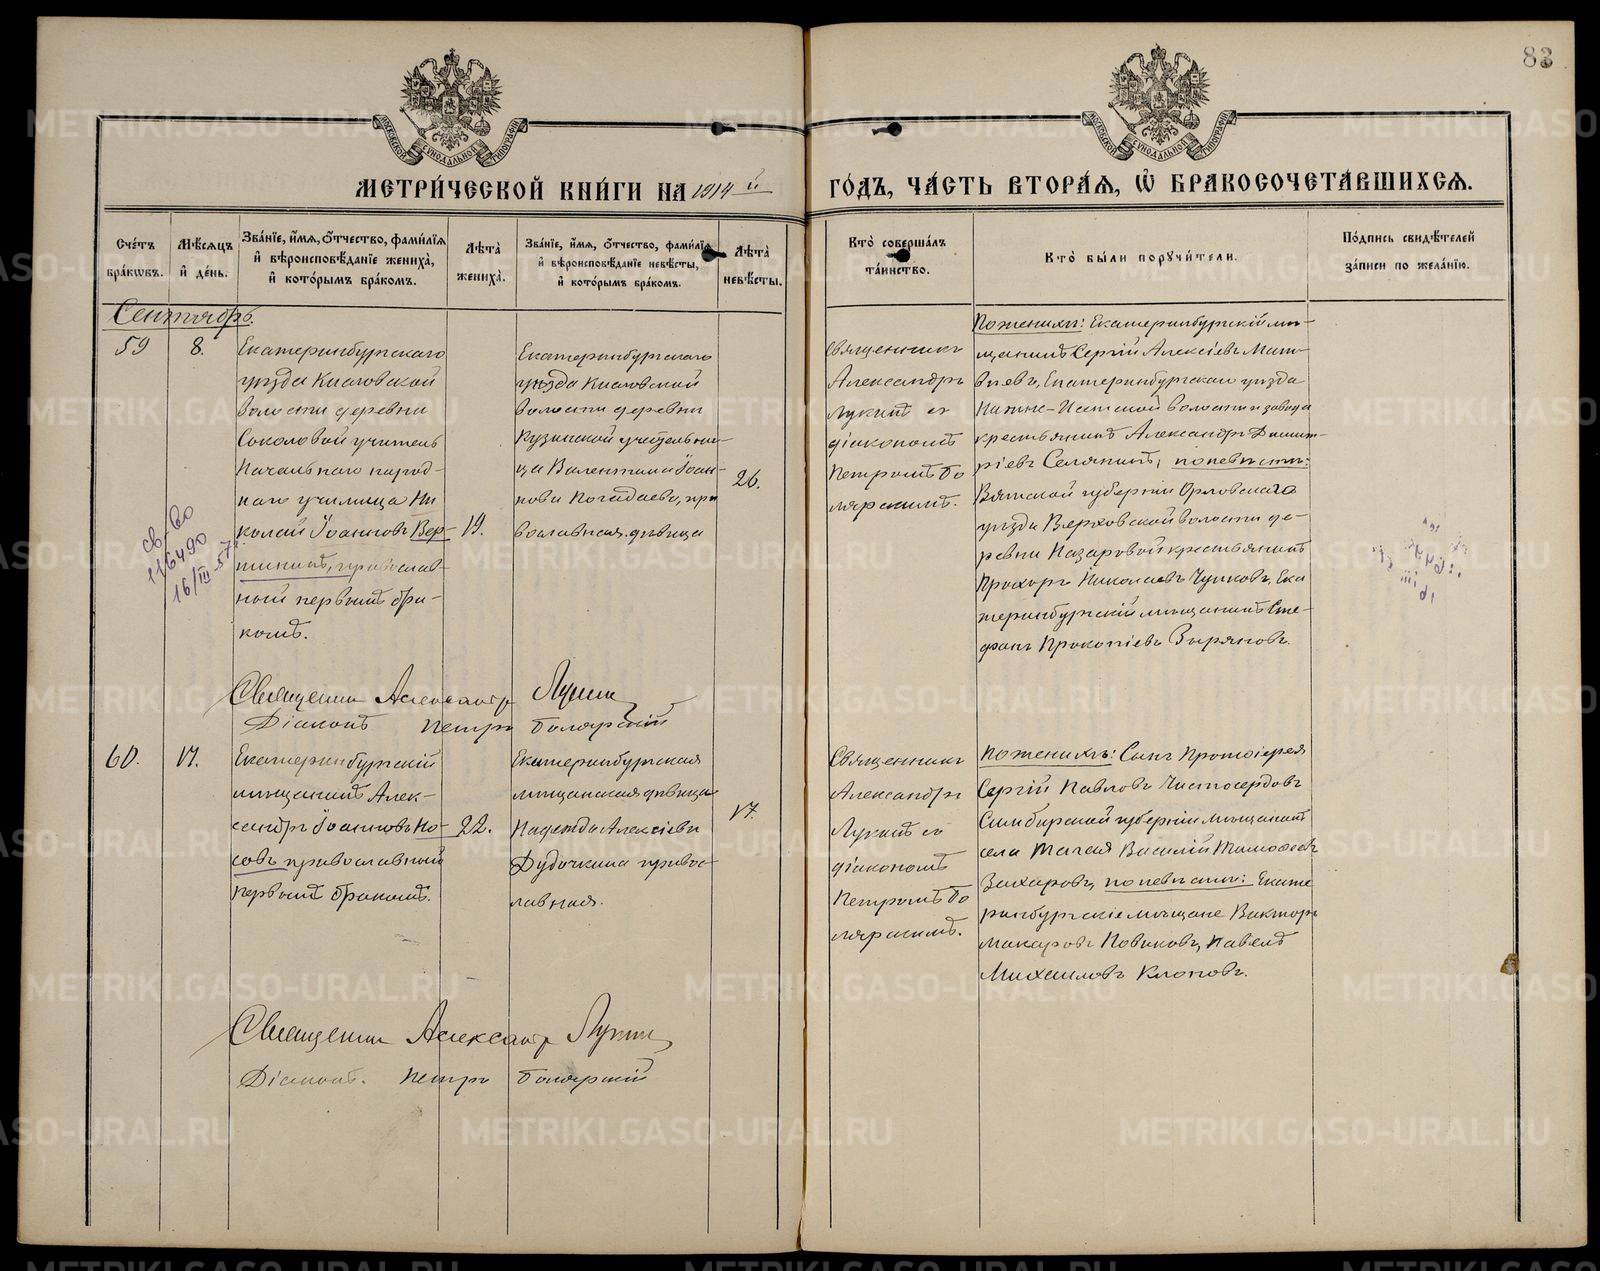 83
МОСКОВСКОЙ СѴНОДАЛЬНОЙ ТИПОГРАФІИ
МОСКОВСКОЙ СѴНОДАЛЬНОЙ ТИПОГРАФІИ
МЕТРИ́ЧЕСКОЙ КНИ́ГИ НА 1914 й
ГО́ДЪ, ЧА́СТЬ ВТОРА́Ѧ, Ѡ҆ БРАКОСОЧЕТА́ВШИХСѦ.
Сче́тъ бра́кѡвъ.
Мѣ́сѧцъ и҆ де́нь.
Зва́нїе, и҆́мѧ, ѻ҆́тчество, фами́лїѧ и҆ вѣроисповѣ́данїе жениха̀, и҆ кото́рымъ бра́комъ.
Лѣ́та жениха̀.
Зва́нїе, и҆́мѧ, ѻ҆́тчество, фами́лїѧ и҆ вѣроисповѣ́данїе невѣ́сты, и҆ кото́рымъ бра́комъ.
Лѣ́та невѣ́сты.
Кто̀ соверша́лъ та́инство.
Кто̀ бы́ли порꙋчи́тели.
По́дпись свидѣ́телей за́писи по жела́нїю.
Сентябрь.
59
8.
Екатеринбургскаго
уѣзда Кисловской
волости деревни
Соколовой учитель
Начальнаго народ-
наго училища Ни
колай Іоанновъ Вер-
шининъ, православ-
ный первымъ бра-
комъ.
19.
Екатеринбургскаго
уѣзда Кисловской
волости деревни
Кузинской учительни-
ца Валентина Іоан-
нова Погадаева, пра
вославная дѣвица
26.
Священникъ
Александръ
Лукинъ съ
діакономъ
Петромъ Бо
лярскимъ.
По женихѣ: Екатеринбургскій мѣ-
щанинъ Сергій Алексіевъ Мат-
вѣевъ, Екатеринбургскаго уѣзда
Нижне-Исетской волости и завода
крестьянинъ Александръ Димит-
ріевъ Селянинъ, по невѣстѣ:
Вятской губерніи Орловскаго
уѣзда Верховской волости де-
ревни Назаровой крестьянинъ
Прохоръ Николаевъ Чулковъ, Ека
теринбургскій мѣщанинъ Сте-
фанъ Прокопіевъ Зыряновъ.
св-во
116490
16/III-57г.
Священникъ Александръ Лукинъ
Діаконъ Петръ Болярскій
60.
17.
Екатеринбургскій
мѣщанинъ Алек-
сандръ Іоанновъ Но-
совъ православный
первымъ бракомъ.
22.
Екатеринбургская
мѣщанская дѣвица
Надежда Алексіева
Дудочкина правос-
лавная.
17.
Священникъ
Александръ
Лукинъ съ
діакономъ
Петромъ Бо
лярскимъ.
По женихѣ: Сынъ Протоіерея
Сергій Павловъ Чистосердовъ
Симбирской губерніи мѣщанинъ
села Василій Тимофеевъ
Захаровъ, по невѣстѣ: Екате
ринбургскіе мѣщане Викторъ
Макаровъ Новиковъ, Павелъ
Михаиловъ Клоповъ.
Священникъ Александръ Лукинъ
Діаконъ. Петръ Болярскій
METRIKI.GASO-URAL.RU